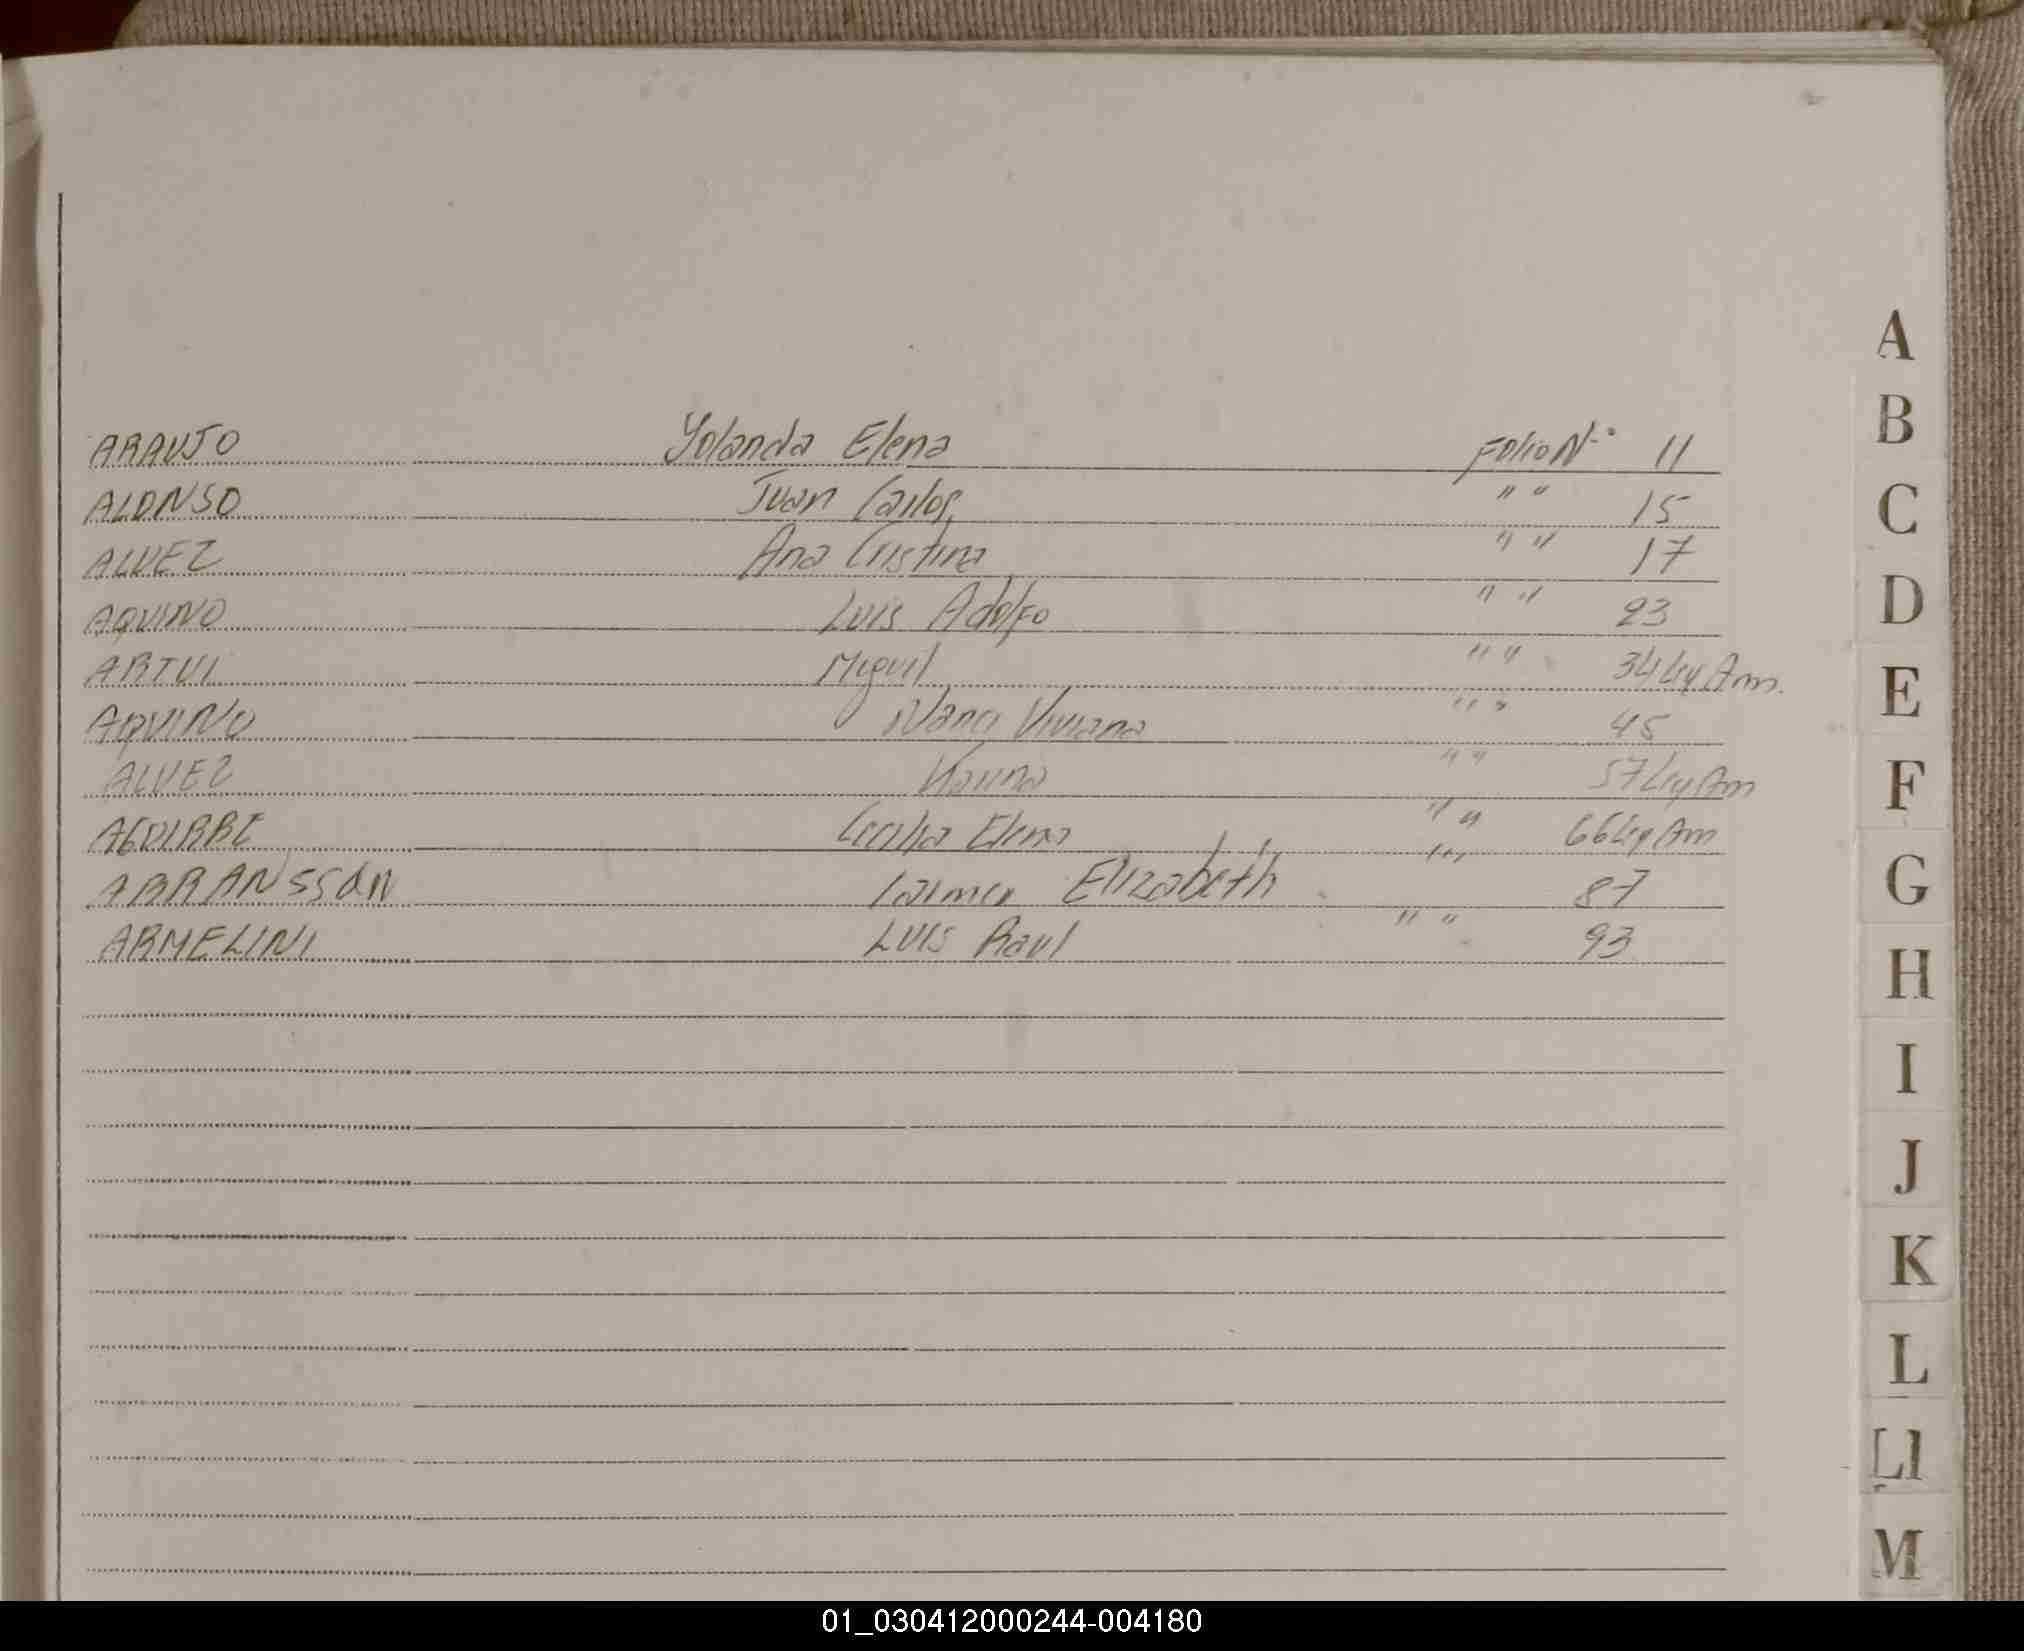 ARAUJO Yolanda Elena Folio N° 11
ALONSO Juan Carlos " " 15
ALVEZ Ana Cristina " " 17
AQUINO Luis Adolfo " " 23
ARTUI Miguel " " 34
AQUINO Nanci Viviana " " 45
ALVEZ Karina " " 57
AGUIRRE Cecilia Elena " " 66
ABRANSSON Elizabeth " " 87
ARMELINI LUIS Raul " " 93
A
B
C
D
E
F
G
H
I
J
K
L
Ll
M
01_030412000244-004180